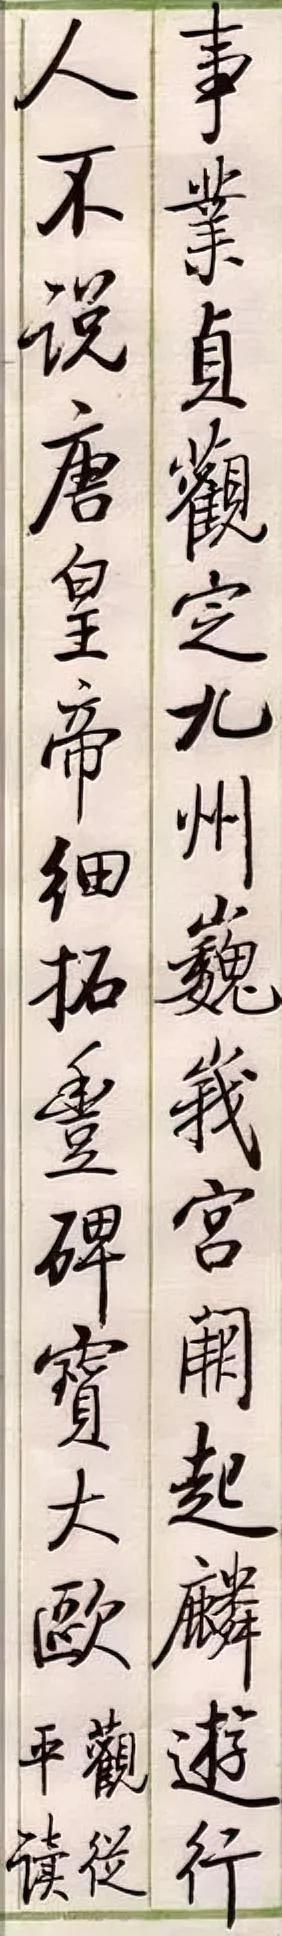 事業貞觀定九州巍峩宮闕起麟遊行
人不说唐皇帝細拓豐碑寶大歐
觀從
平读